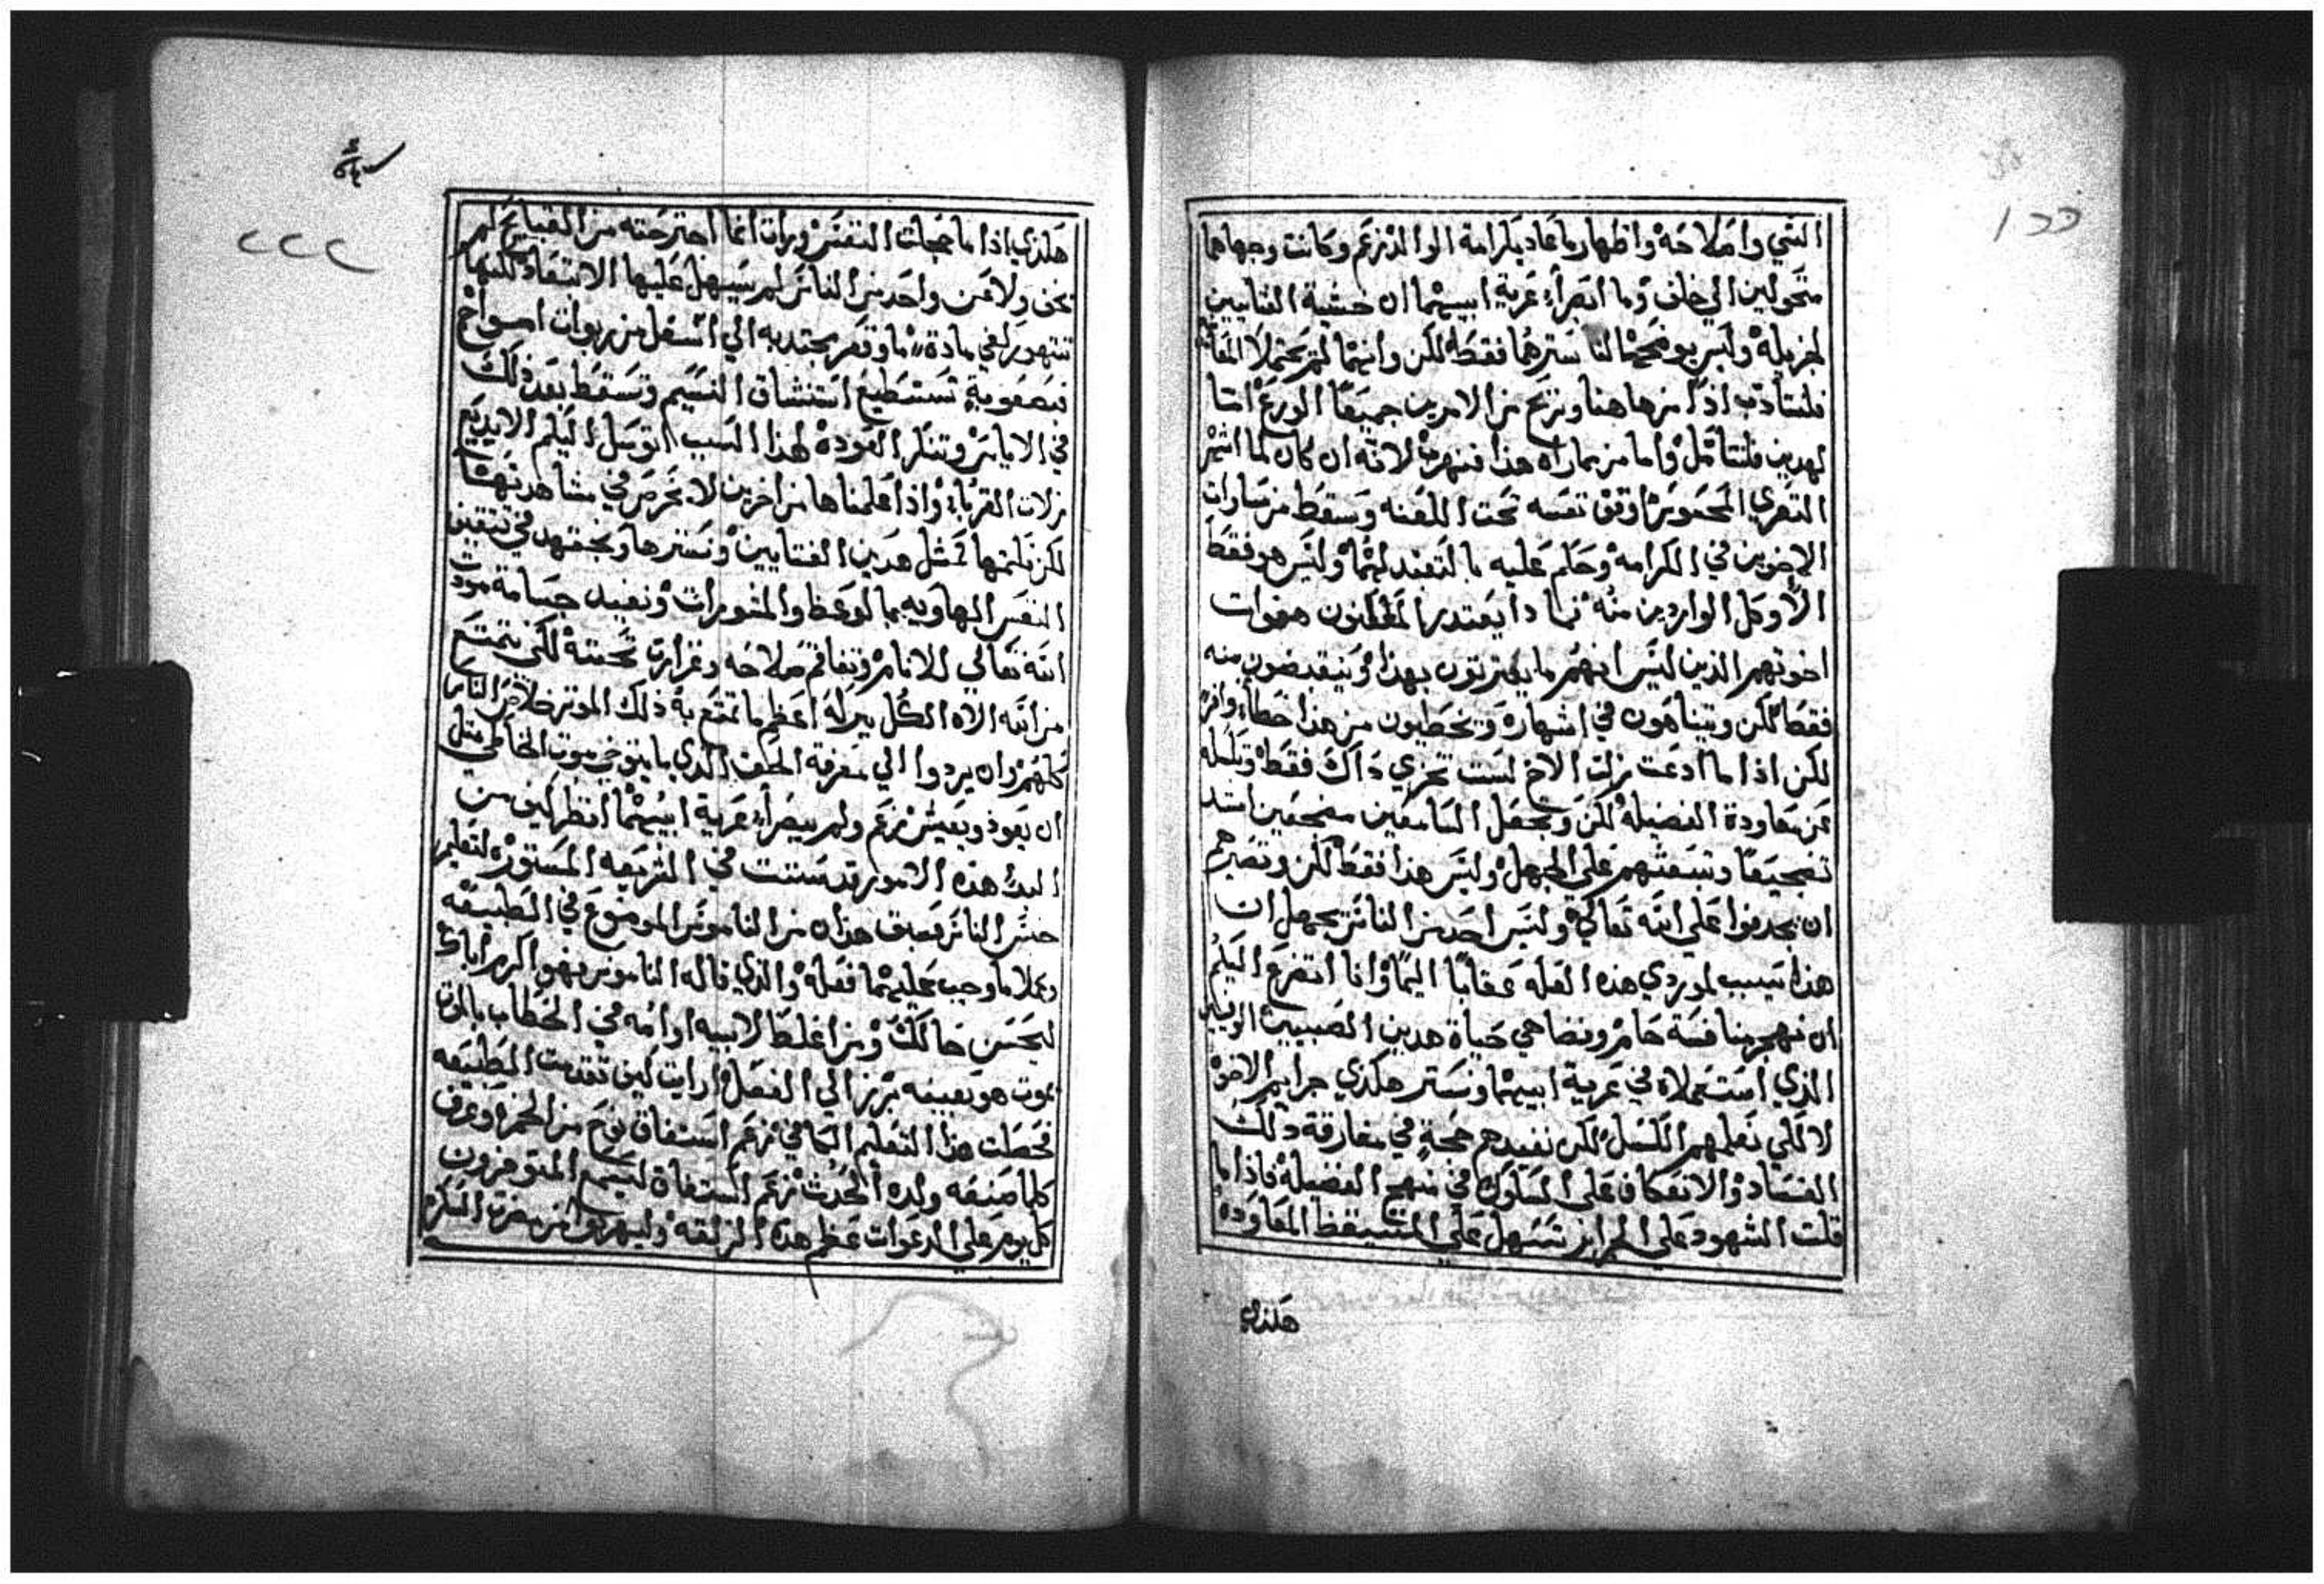 ١٥٥
الشي واصلاحه واظهار ما عاد بكرامة الوالد زعم وكانت وجهاهما
متحولين الي خلف وما ابصرا عرية ابيهما ان خشية الشابين
لجزيلة وليس يوضحهما لنا سترهما فقط لكن وانهما لم يحتملا
فلنتادب اذا من هاهنا ونربح من الامرين جميعا الورع اما
لهدين فلنتامل واما من مماراه هذا فنهرب لانه ان كان لما اشهر
التعري المحسوس اوقف نفسه تحت اللعنه وسقط من مساوات
الاخوين في الكرامه وحكم عليه بالتعبد لهما وليس هو فقط
الا وكل الواردين منه فما دا يعتدر المعلنون هفوات
اخوتهم الذين ليس انهم ما يفترتون بهذا وينقدضون منه
فقط لكن ويتباهون في اشهاره ويخطيون من هذا خطاء وافرا
لكن اذا ما ادعت زلت الاخ لست تخزي داك فقط وتكسله
عن معاودة الفضيله لكن وتجعل السامعين مضجعين اشد
تضجيعا وتبعثهم علي الجهل وليس هذا فقط لكن وتصيرهم
ان يجدفوا علي الله تعالي وليس احد من الناس يجهل ان
هذا يسبب لموردي هذه العله عقابا اليما وانا اتضرع اليكم
ان نهجر منافسة حام ونضاهي حياة هدين الصبيين
الذي استعملاه في عرية ابيهما ونستر هكذي جرايم الاخوه
لا لكي نعلمهم الكسل لكن نفيدهم حجة في مفارقة دلك
الفساد والانعكاف علي السلوك في منهج الفضيلة فاذا ما
قلت الشهود علي الجرايز تسهل علي المتسيقظ المعاوده
هكذي
٢٢٢
هكذي اذا ما خجلت النفس ورات انما اجترحته من القبايح لم
يخف ولا عن واحد من الناس لم يسهل عليها الابتعاد لكنها
تتهور لفي مادة ما وقعر يجتدبه الي اسفل من ربوات امواج
فبصعوبة تستطيع استنشاق النسيم وتسقط بعد ذلك
في الاياس وتنكر العودة لهذا السبب اتوسل اليكم الا نديع
زلات القرباء واذا علمناها من اخرين لا نحرص في مشاهدتها
لكن نكتمها كمثل هدين الفتايين ونسترها ونجتهد في تتقيف
النفس الهاويه بما لوعظ والمشورات ونفيد جسامة مودت
الله تعالي للانام وتفاقم صلاحه وغزارت تحننه لكي نتمتع
من الله الاه الكل ببركة اعظم ما تمتع به ذلك الموتر خلاص الناس
كلهم وان يردوا الي معرفة الحق الذي ما يتوخي موت الخاطي مثل
ان يعود ويعيش زعم ولم يبصرا عرية ابيهما انظر كيف من
البدء هذه الامور قد سننت في الشريعه المستوره لتعليم
جنس الناس فعرف هذان من الناموس الموضوع في الطبيعه
وعملا ما وجب عليهما فعله والذي قاله الناموس فهو اكرم اباك
ليحسن حالك ومن اغلظ لابيه او امه في الخطاب بالموت
يموت هو بعينه تبرز الي الفعل ارايت كيف تقدمت الطبيعه
فحصلت هذا التعليم السامي زعم استفاق نوح من الخمر وعرف
كلما صنعه ولده الحدث زعم استفاق ليسمع المتوفرون
كل يوم علي الدعوات عظم هذه الزلقه وليهربوا من مضرت السكر